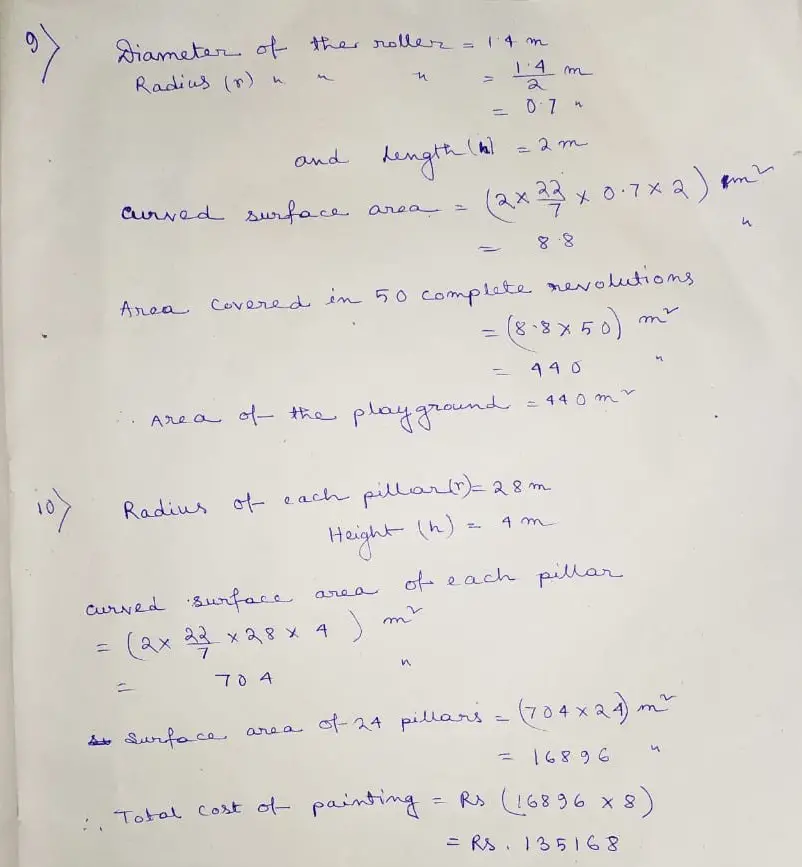 9) Diameter of the roller = 1.4 m
Radius (r) " " " = 1.4/2 m
= 0.7 "
and Length (h) = 2 m
Curved surface area = (2 × 22/7 × 0.7 × 2) m²
= 8.8 "
Area covered in 50 complete revolutions
= (8.8 × 50) m²
= 440 "
∴ Area of the playground = 440 m²
10) Radius of each pillar (r) = 28 m
Height (h) = 4 m
Curved surface area of each pillar
= (2 × 22/7 × 28 × 4) m²
= 704 "
Surface area of 24 pillars = (704 × 24) m²
= 16896 "
∴ Total cost of painting = Rs (16896 × 8)
= Rs. 135168